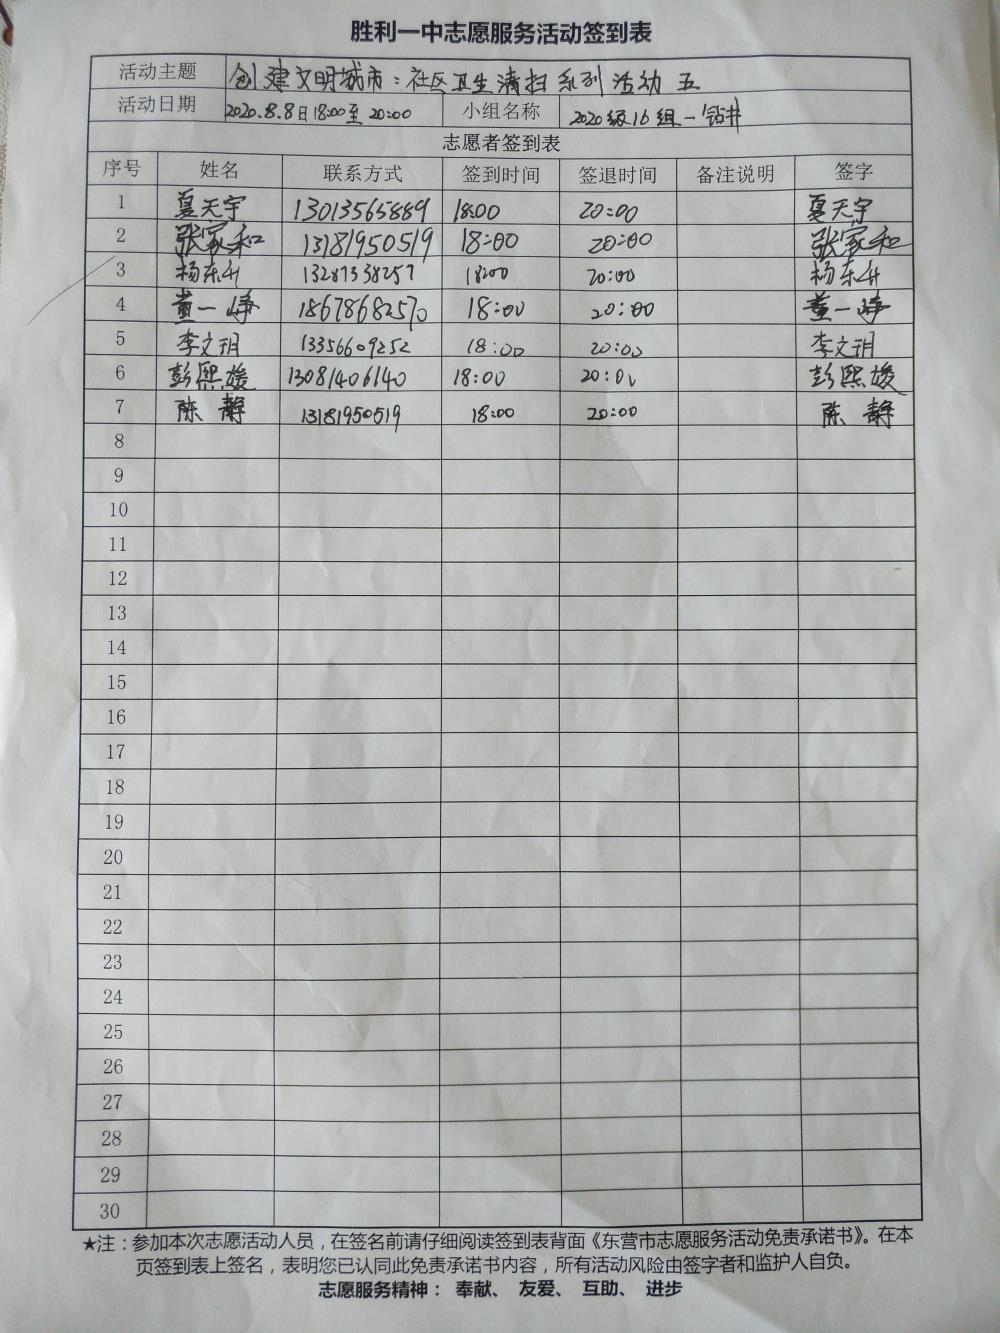 胜利一中志愿服务活动签到表
活动主题 创建文明城市：社区卫生清扫系列活动五
活动日期 2020.8.8日18:00至20:00 小组名称 2020级16组一钻井
志愿者签到表
序号 姓名 联系方式 签到时间 签退时间 备注说明 签字
1 夏天宇 13013565889 18:00 20:00 夏天宇
2 张家和 13181950519 18:00 20:00 张家和
3 杨东升 13287338257 18:00 20:00 杨东升
4 董一峥 18678682570 18:00 20:00 董一峥
5 李文玥 13356609252 18:00 20:00 李文玥
6 彭熙媛 13081406140 18:00 20:00 彭熙媛
7 陈静 13181950519 18:00 20:00 陈静
8
9
10
11
12
13
14
15
16
17
18
19
20
21
22
23
24
25
26
27
28
29
30
★注：参加本次志愿活动人员，在签名前请仔细阅读签到表背面《东营市志愿服务活动免责承诺书》。在本
页签到表上签名，表明您已认同此免责承诺书内容，所有活动风险由签字者和监护人自负。
志愿服务精神： 奉献、 友爱、 互助、 进步